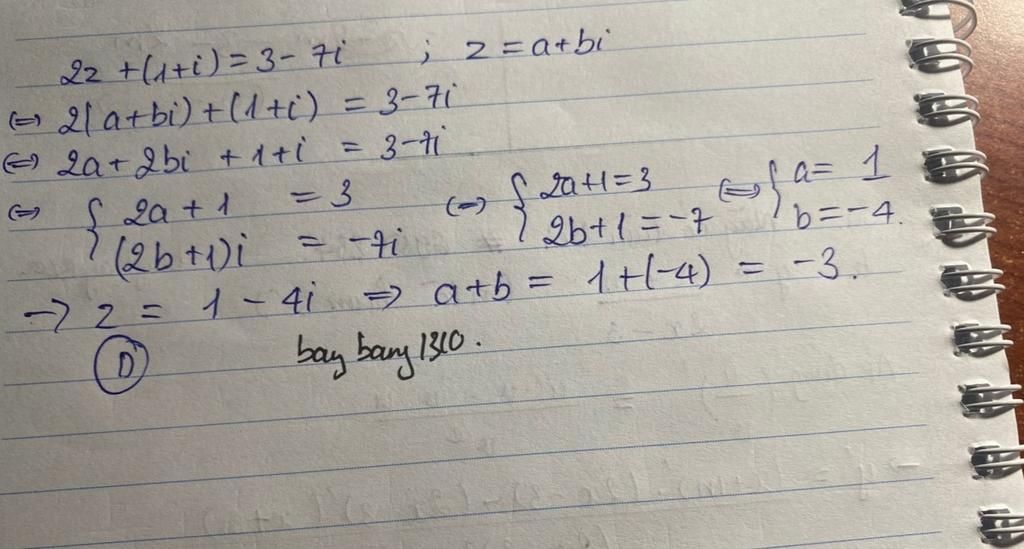 2z + (1+i) = 3 - 7i ; z = a+bi
⇔ 2(a+bi) + (1+i) = 3-7i
⇔ 2a + 2bi + 1+i = 3-7i
⇔ { 2a + 1 = 3 ⇔ { 2a+1=3 ⇔ { a= 1
(2b+1)i = -7i 2b+1 = -7 b=-4.
→ z = 1 - 4i ⇒ a+b = 1+(-4) = -3.
D bay bany 1310.